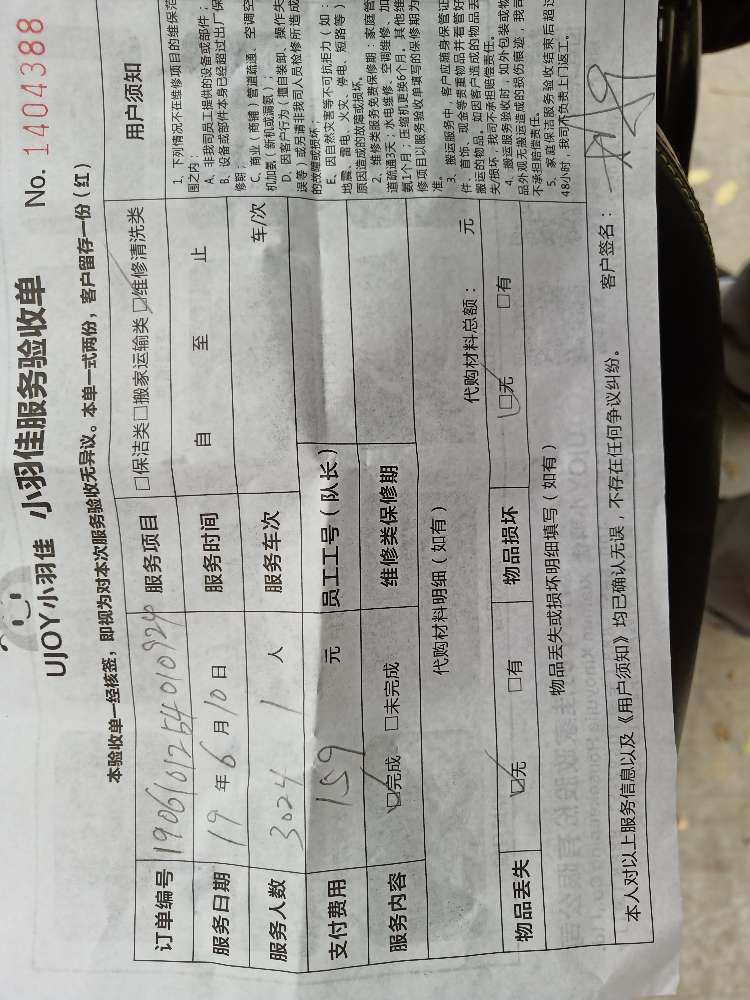 UJOY小羽佳 小羽佳服务验收单 No. 1404388
本验收单一经核签，即视为对本次服务验收无异议。本单一式两份，客户留存一份（红）
订单编号 190610125401092
服务项目 □保洁类□搬家运输类☑维修清洗类
服务日期 19年6月10日
服务时间 自 至 止
服务人数 3024 1 人
服务车次 车/次
支付费用 159 元
员工工号（队长）
服务内容 ☑完成 □未完成
维修类保修期
代购材料明细（如有） 代购材料总额： 元
物品丢失 ☑无 □有
物品损坏 ☑无 □有
物品丢失或损坏明细填写（如有）
用户须知
1、下列情况不在维修项目的维保范
围之内：
A、非我司员工提供的设备或部件；
B、设备或部件本身已经超过出厂保
修期；
C、商业（商铺）管道疏通、空调空
机加氨（新机或漏氨）；
D、因客户行为（擅自装卸、操作失
误等）或另请非我司人员检修所造成
的故障或损坏；
E、因自然灾害等不可抗拒力（如：
地震、雷电、火灾、停电、短路等）
原因造成的故障或损坏。
2、维修类服务免费保修期：家庭管
道疏通3天；水电维修、空调维修、加
氨1个月；压缩机更换6个月。其他维
修项目以服务验收单填写的保修期为
准。
3、搬运服务中，客户应随身保管证
件、首饰、现金等贵重物品并看管好
搬运的物品。如因客户造成的物品丢
失/损坏，我司不承担赔偿责任。
4、搬运服务验收时，如外包装或物
品外观无搬运造成的损伤痕迹，我司
不承担赔偿责任。
5、家庭保洁服务验收结束后超过
48小时，我司不负责上门返工。
本人对以上服务信息以及《用户须知》均已确认无误，不存在任何争议纠纷。 客户签名：